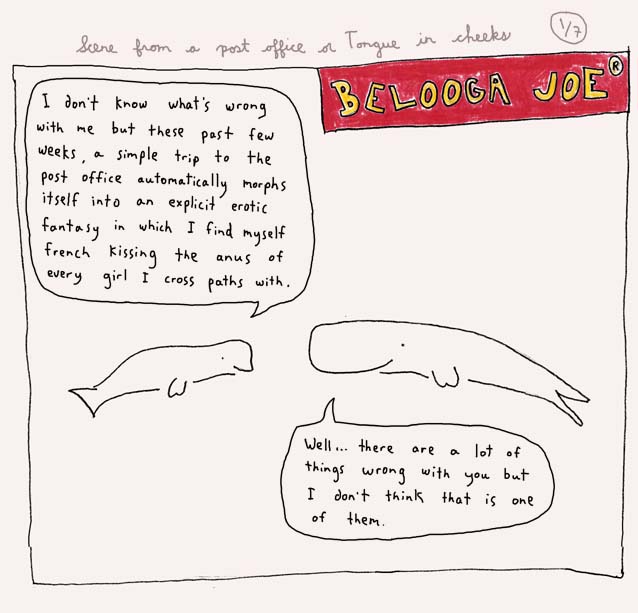 Scene from a post office or Tongue in cheeks
1/7
BELOOGA JOE®
I don't know what's wrong
with me but these past few
weeks, a simple trip to the
post office automatically morphs
itself into an explicit erotic
fantasy in which I find myself
french kissing the anus of
every girl I cross paths with.
Well... there are a lot of
things wrong with you but
I don't think that is one
of them.